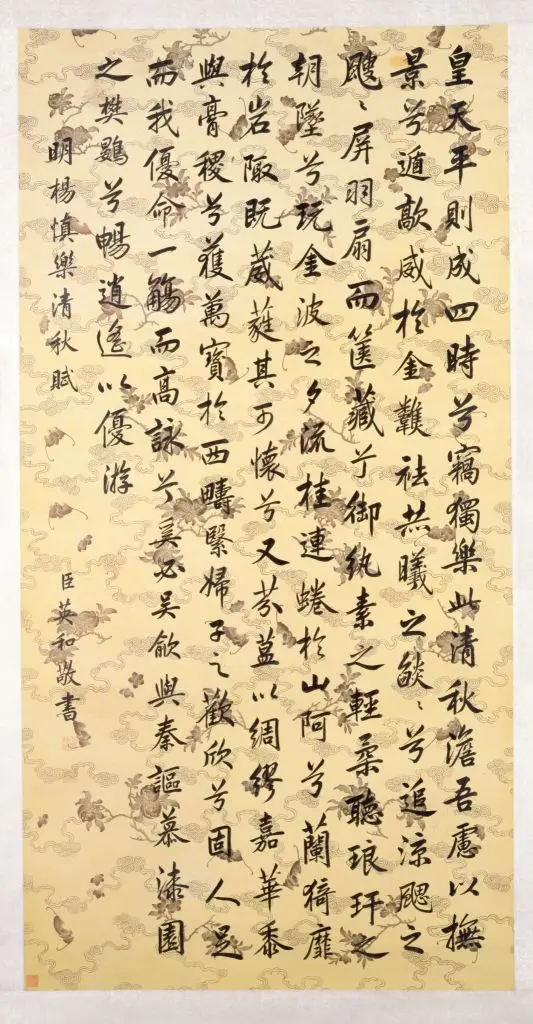 皇天平則成四時兮竊獨樂此清秋澹吾慮以撫
景兮遁歊威於金祛曦之燄〻兮追涼颸之
颼〻屏羽扇而篋藏兮御紈素之輕柔聽琅玕之
朝墜兮玩金波之夕流桂連蜷於山阿兮蘭猗靡
於岩陬既葳蕤其可懷兮又芬蒀以綢繆嘉華黍
與膏稷兮獲萬寶於西疇繄婦子之歡欣兮固人足
而我優命一觴而高詠兮奚必吳歈與秦謳慕漆園
之樊鷃兮暢逍遙以優游
明楊慎樂清秋賦
臣英和敬書